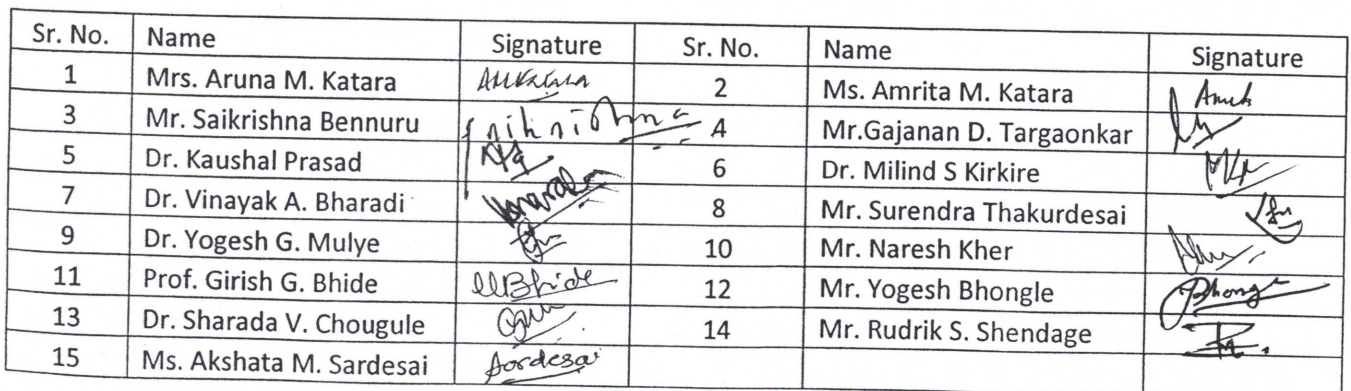 Sr. No. Name Signature Sr. No. Name Signature
1 Mrs. Aruna M. Katara AMKatara 2 Ms. Amrita M. Katara
3 Mr. Saikrishna Bennuru Saikrishna 4 Mr.Gajanan D. Targaonkar
5 Dr. Kaushal Prasad 6 Dr. Milind S Kirkire
7 Dr. Vinayak A. Bharadi 8 Mr. Surendra Thakurdesai
9 Dr. Yogesh G. Mulye 10 Mr. Naresh Kher
11 Prof. Girish G. Bhide 12 Mr. Yogesh Bhongle
13 Dr. Sharada V. Chougule 14 Mr. Rudrik S. Shendage
15 Ms. Akshata M. Sardesai Sardesai